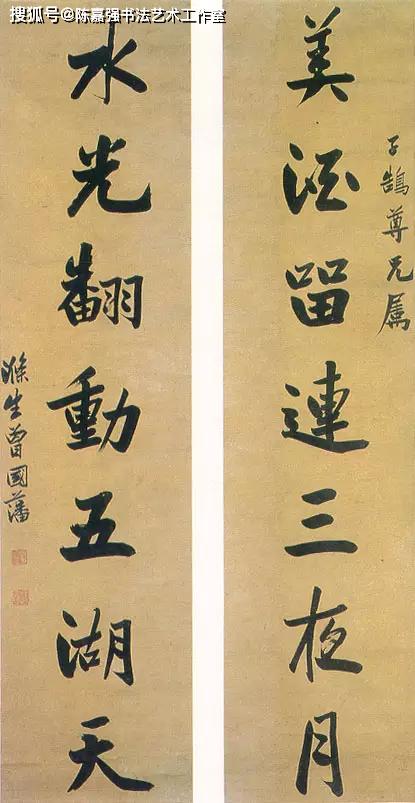 搜狐号@陈嘉强书法艺术工作室
子鹄尊兄属
美酒留連三夜月
水光翻動五湖天
滌生曾國藩